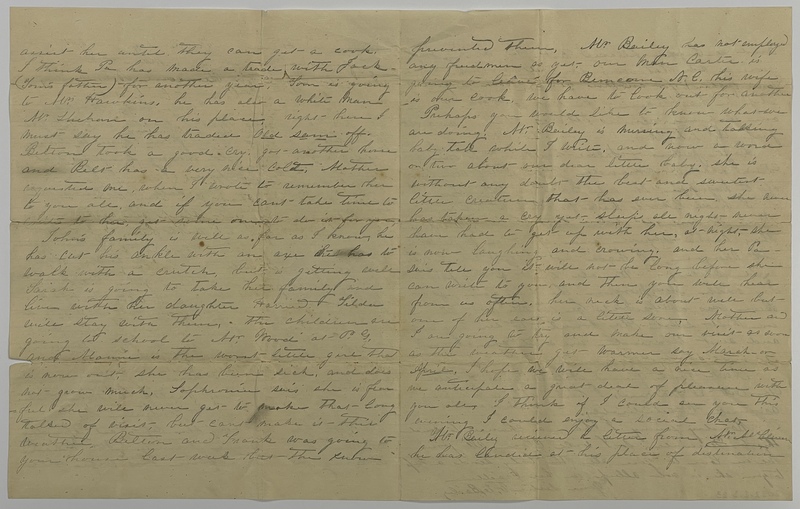 assist her until they can get a cook.
I think Pa has made a trade with Jack
(Tom's father) for another year; Tom is going
to Mr Hawkins. he has also a white man
Mr on his place, right here I
must say he has traded Old Sam off.
Belton took a good cry, got another horse
and Belt has a very nice Colt, Mother
requested me, when I wrote to remember her
to you all, and if you can't take time to
write to her, get some one to do it for you.
John's family is well as far as I know, he
has cut his ankle with an axe he has to
walk with a crutch, but is getting well
is going to take her family and
live with her daughter & Tilda
will stay with them. The children are
going to school to Mr Wood at P G,
and Mamie is the worst little girl that
is now out she has been sick and does
not grow much, Sophronia says she is fear
ful she will never get to make that long
talked of visit, but can't make it this
weather Belton and Frank was going to
your house last week but the rain
prevented them, Mr Bailey has not employed
any freedmen as yet, our man Carter is
going to leave for N.C. his wife
is our cook. we have to look out for another
Perhaps you would like to know what we
are doing. Mr Bailey is nursing and talking
baby talk while I write. and now a word
or two about our dear little baby. she is
without any doubt the best and sweetest
little creature that has ever been, she
has a cry yet. sleeps all night never
have had to get up with her, at night, she
is now laughing and crowing, and her Pa
says tell you it will not be long before she
can write to you and then you will hear
from us often. her neck is about well but
one of her ears is a little sore, Mother and
I are going to try and make our visit as soon
as the weather gets warmer say March or
April. I hope we will have a nice time as
we anticipate a great deal of pleasure with
you all. I think if I could see you this
evening I could enjoy a social chat.
Mr Baily received a letter from
he has landed at his place of destination